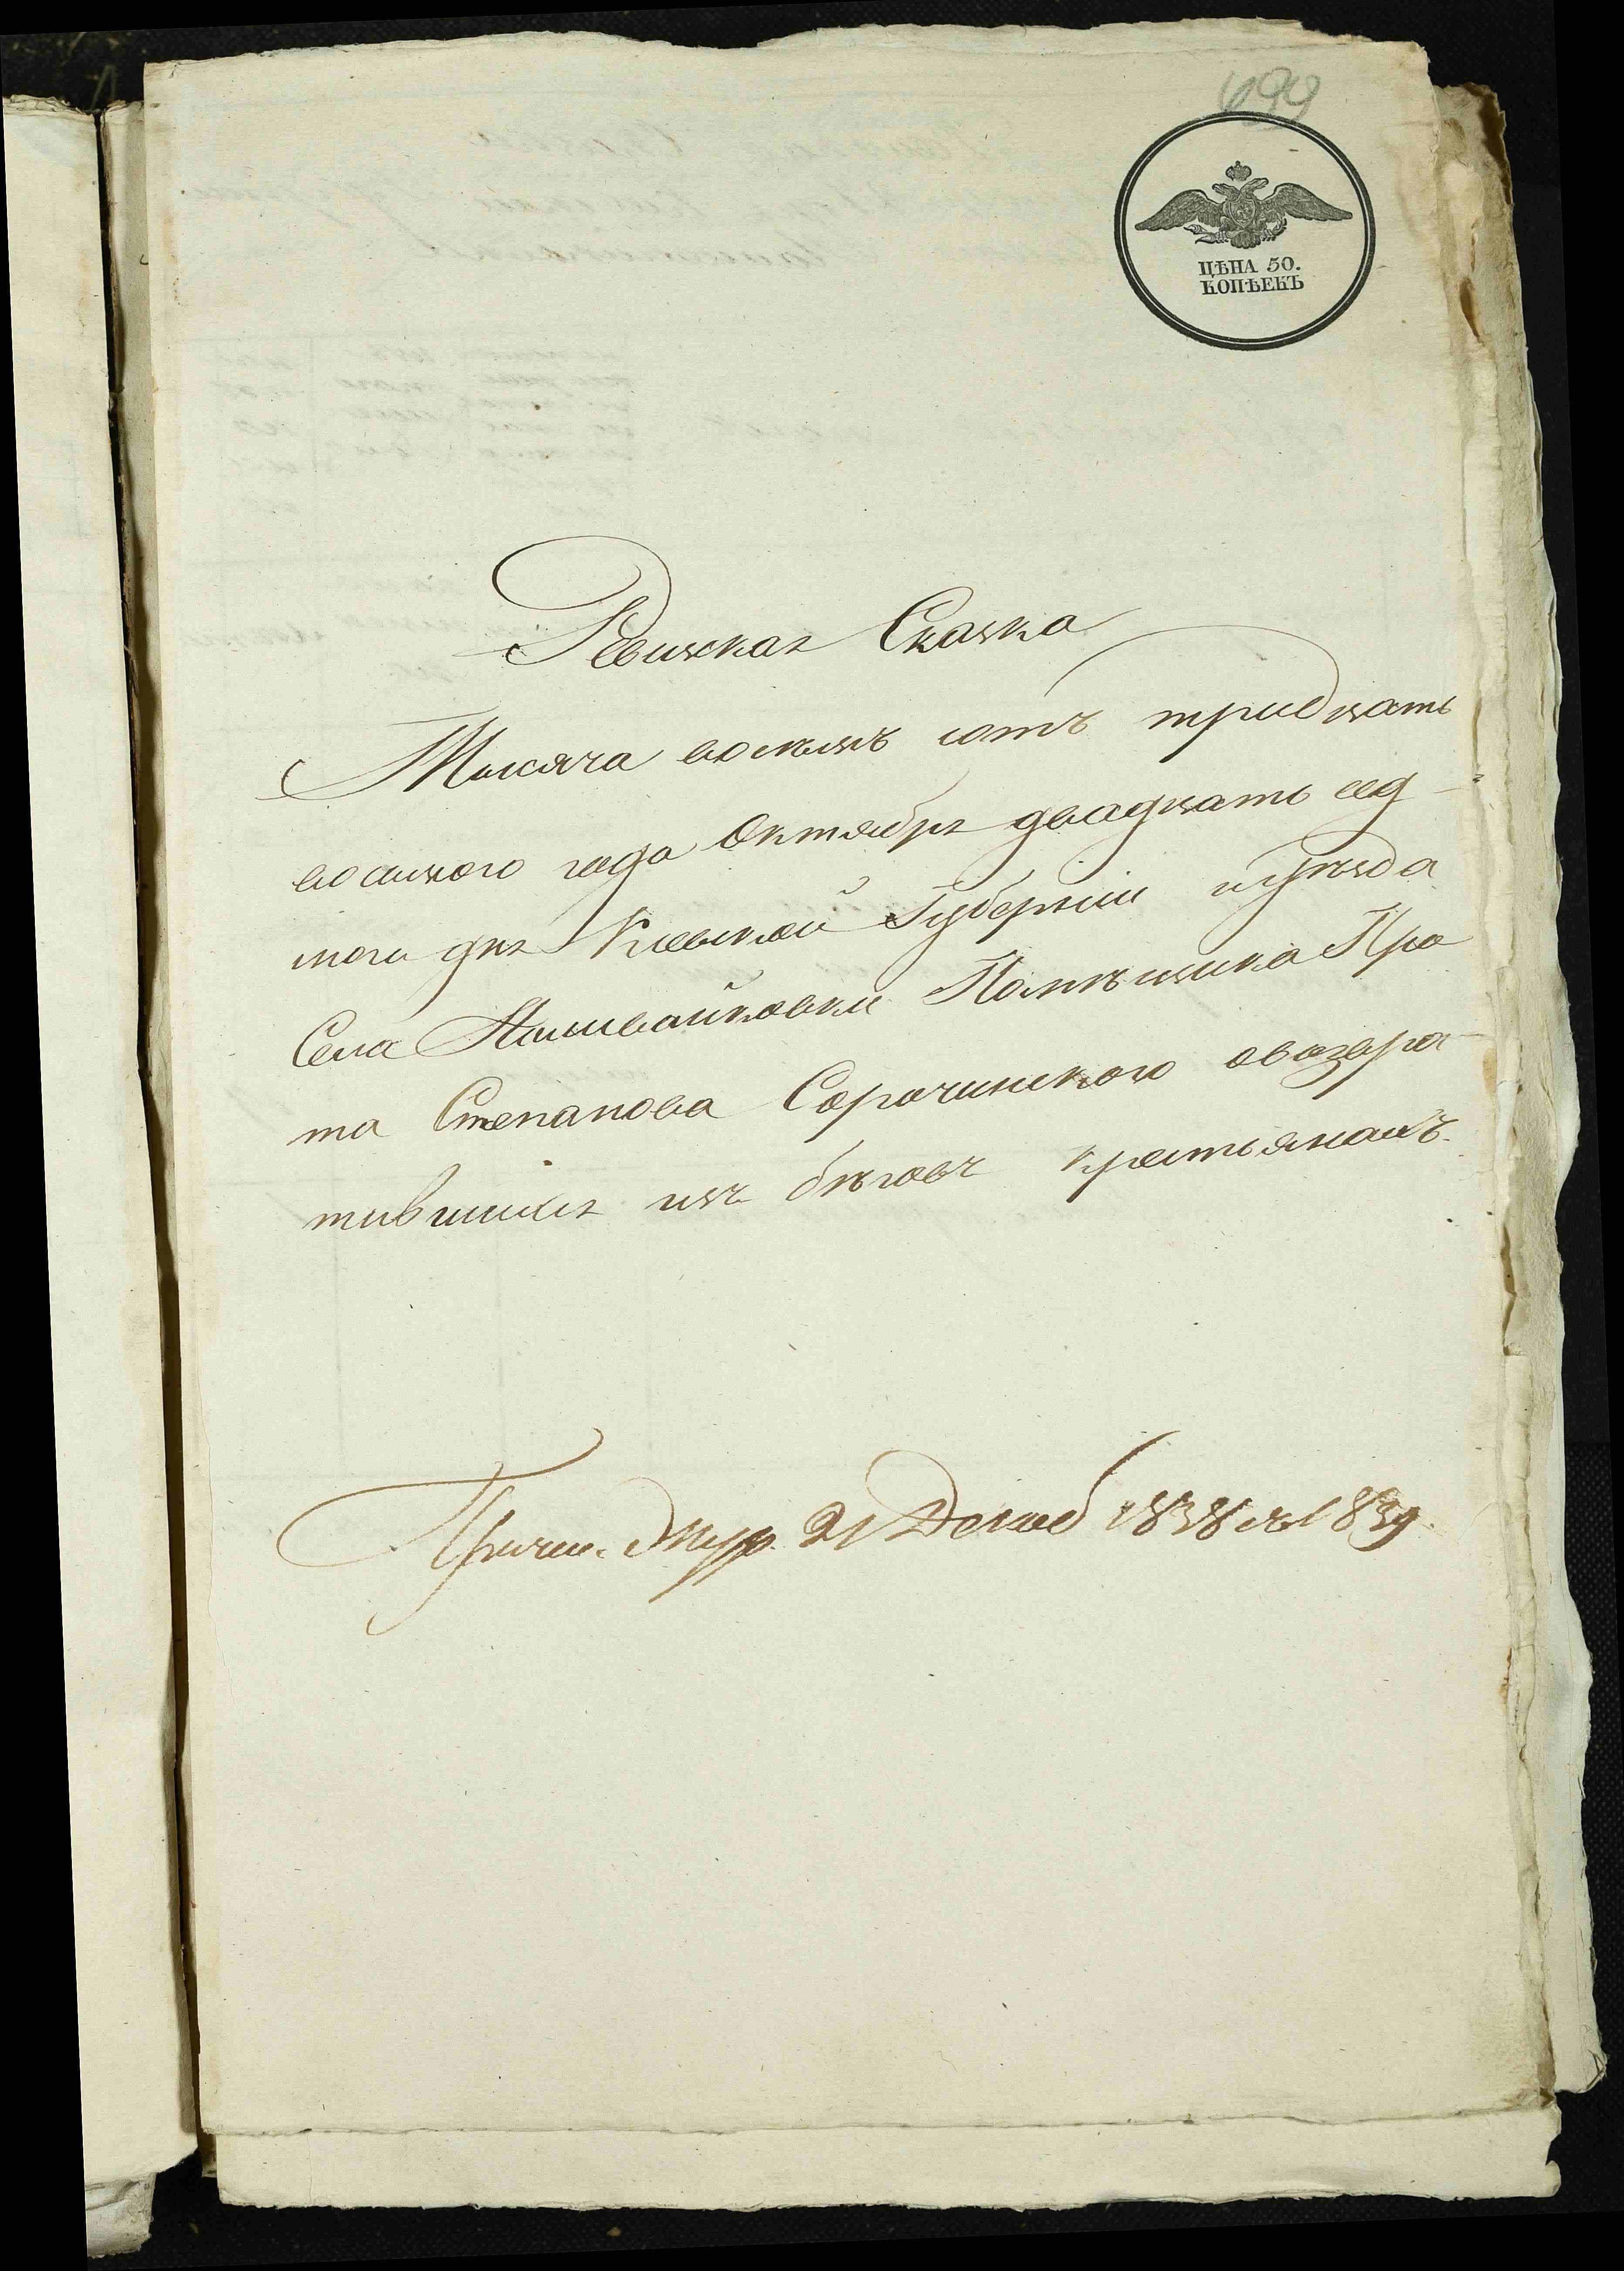 699
ЦѢНА 50.
КОПѢЕКЪ
Ревизкая Сказка
Тысяча восемъ сотъ тридцать
восмого года Октября двадцать сед-
мого дня Киевской Губернии и уѣзда
Села Наливайковки Помѣщика Про
та Степанова Сорочинского овозвра-
тившихся изъ бѣговъ крестьянахъ.
21 Декаб 1838